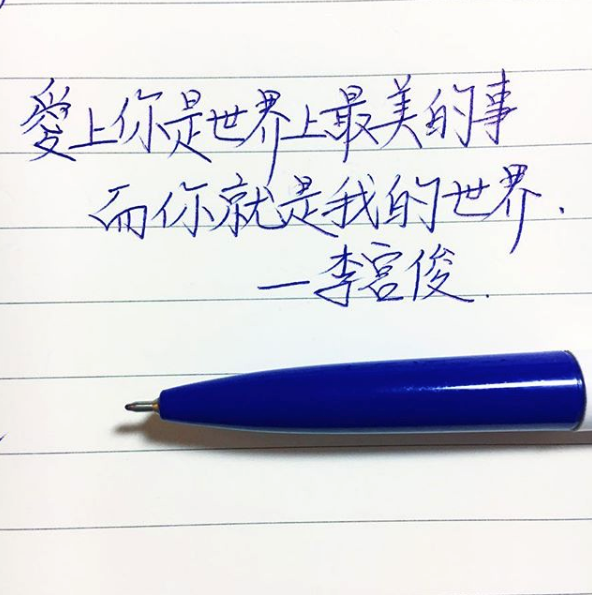 愛上你是世界上最美的事
而你就是我的世界.
—李宮俊.